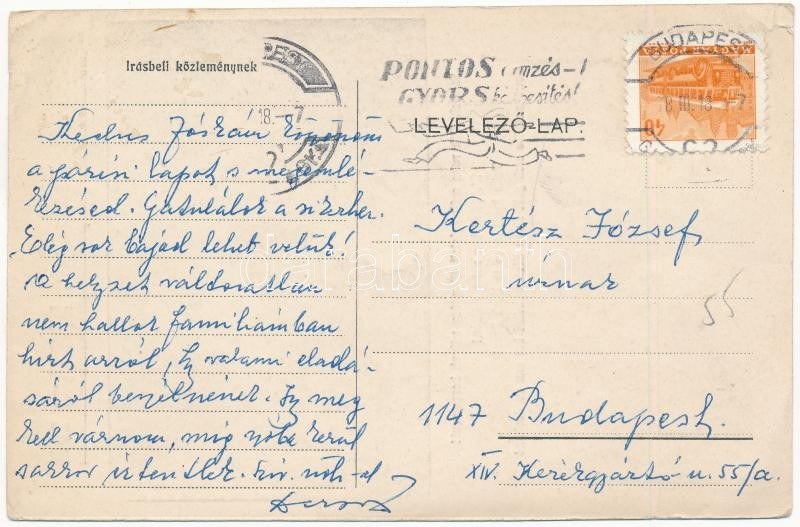 Irásbeli közleménynek
PONTOS címzés -
GYORS kézbesítés!
LEVELEZŐ-LAP.
BUDAPEST
MAGYAR POSTA
40
Köszönöm
a párisi lapot s megemlé-
kezésed. Gratulálok a sikerhez.
Elég sok bajod lehet velük!
A helyzet változatlan
nem hallok famíliámban
hírt arról, hogy valami eladá-
sáról beszélnének. Így meg
kell várnom, míg
értesítlek. Szív. üdv-el
Kertész József
1147 Budapest.
XIV. Kerékgyártó u. 55/a.
55
darabanth